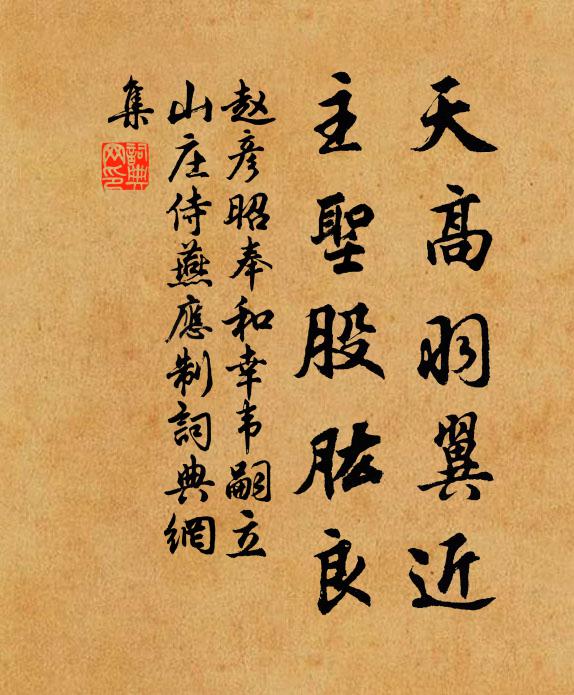 天高羽翼近
主聖股肱良
赵彦昭奉和幸韦嗣立
山庄侍燕應制詞典網
集
詞典網印